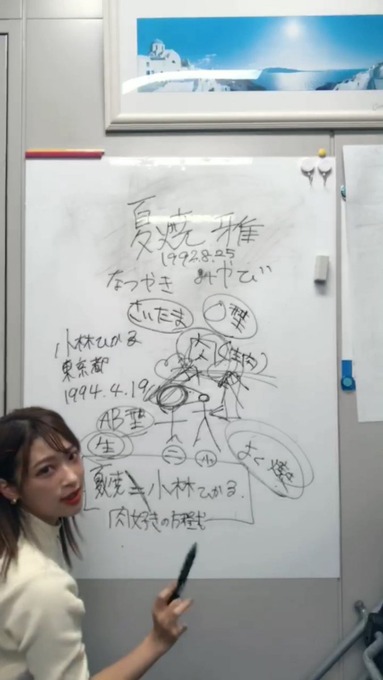 夏焼 雅
1992.8.25
なつやき みやび
さいたま
○型
小林ひかる
東京都
1994.4.19
AB型
生
二
小
夏焼=小林ひかる.
肉好きの方程式